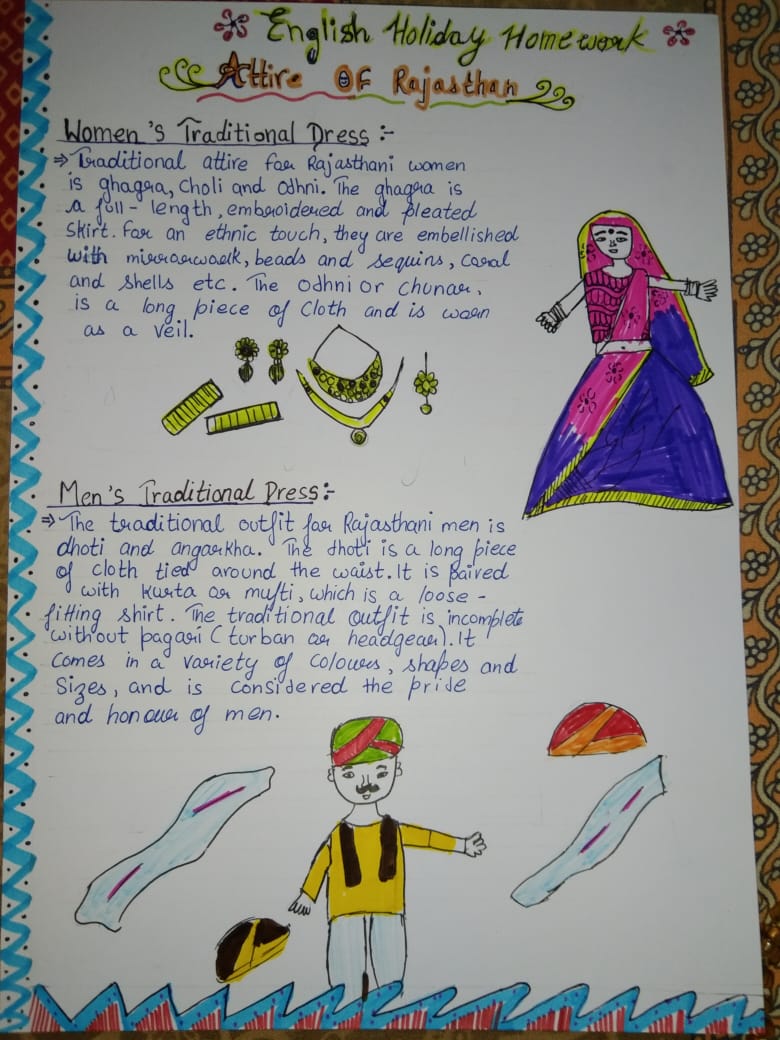 English Holiday Homework
Attire OF Rajasthan
Women's Traditional Dress :-
⇒ Traditional attire for Rajasthani women
is ghagra, choli and odhni. The ghagra is
a full-length, embroidered and pleated
skirt. For an ethnic touch, they are embellished
with mirrorwork, beads and sequins, coral
and shells etc. The odhni or chunar,
is a long piece of cloth and is worn
as a veil.
Men's Traditional Dress :-
⇒ The traditional outfit for Rajasthani men is
dhoti and angarkha. The dhoti is a long piece
of cloth tied around the waist. It is paired
with kurta or mufti, which is a loose-
fitting shirt. The traditional outfit is incomplete
without pagari (turban or headgear). It
comes in a variety of colours, shapes and
sizes, and is considered the pride
and honour of men.